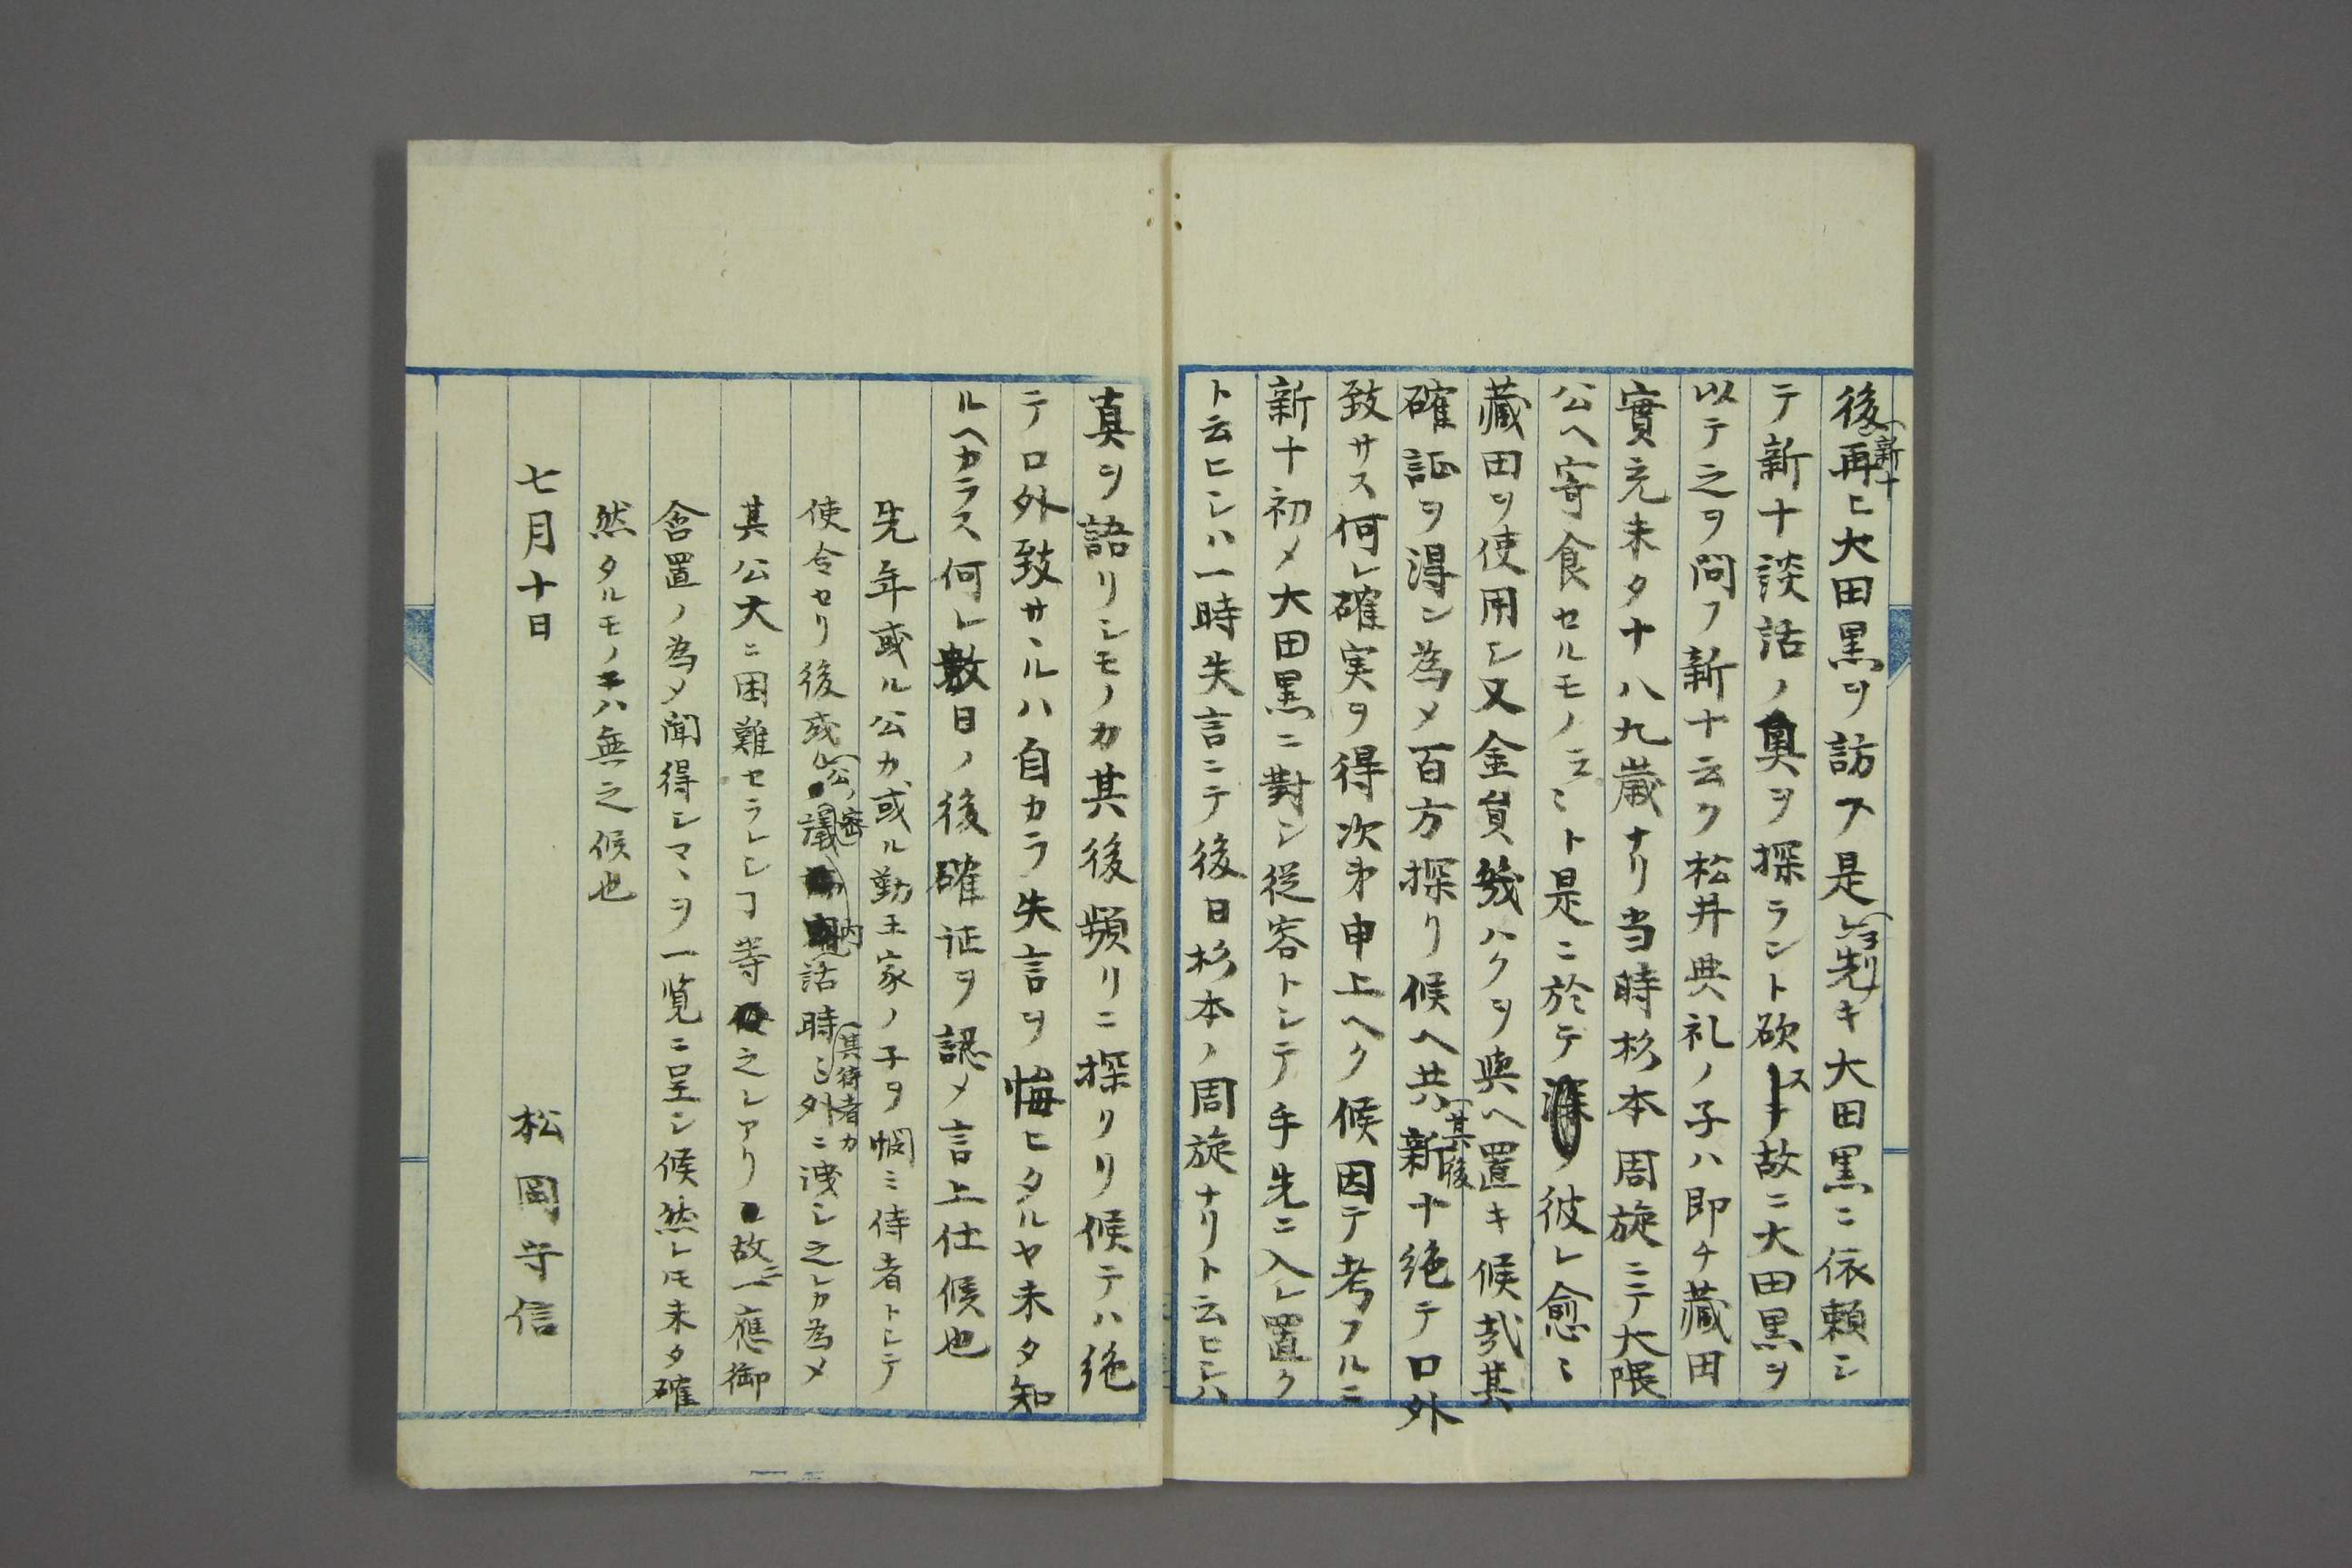 後新十再ヒ大田黒ヲ訪フ是レヨリ先キ大田黒ニ依頼シ
テ新十談話ノ奥ヲ探ラント欲ス故ニ大田黒ヲ
以テ之ヲ問フ新十云ク松井典礼ノ子ハ即チ藏田
實充未タ十八九歳ナリ当時杉本周旋ニテ大隈
公ヘ寄食セルモノ云々ト是ニ於テ彼レ愈ミ
藏田ヲ使用シ又金員幾ハクヲ與ヘ置キ候哉其
確証ヲ得ン為メ百方探リ候ヘ共其後新十絶テ口外
致サス何レ確実ヲ得次第申上ヘク候因テ考フルニ
新十初メ大田黒ニ對シ従容トシテ手先ニ入レ置ク
ト云ヒシハ一時失言ニテ後日杉本ノ周旋ナリト云ヒシハ
真ヲ語リシモノカ其後頻リニ探クリ候テハ絶
テ口外致サヽルハ自カラ失言ヲ悔ヒタルヤ未タ知
ルヘカラス何レ数日ノ後確証ヲ認メ言上仕候也
先年或ル公カ或ル勤王家ノ子ヲ憫ミ侍者トシテ
使令セリ後或ル公密議内話時其侍者カ外ニ洩シ之レカ為メ
其公大ニ困難セラレシヿ等之レアリ故ニ一應御
含置ノ為メ聞得シマヽヲ一覧ニ呈シ候然レ𪜈未タ確
然タルモノハ無之候也
七月十日
松岡守信